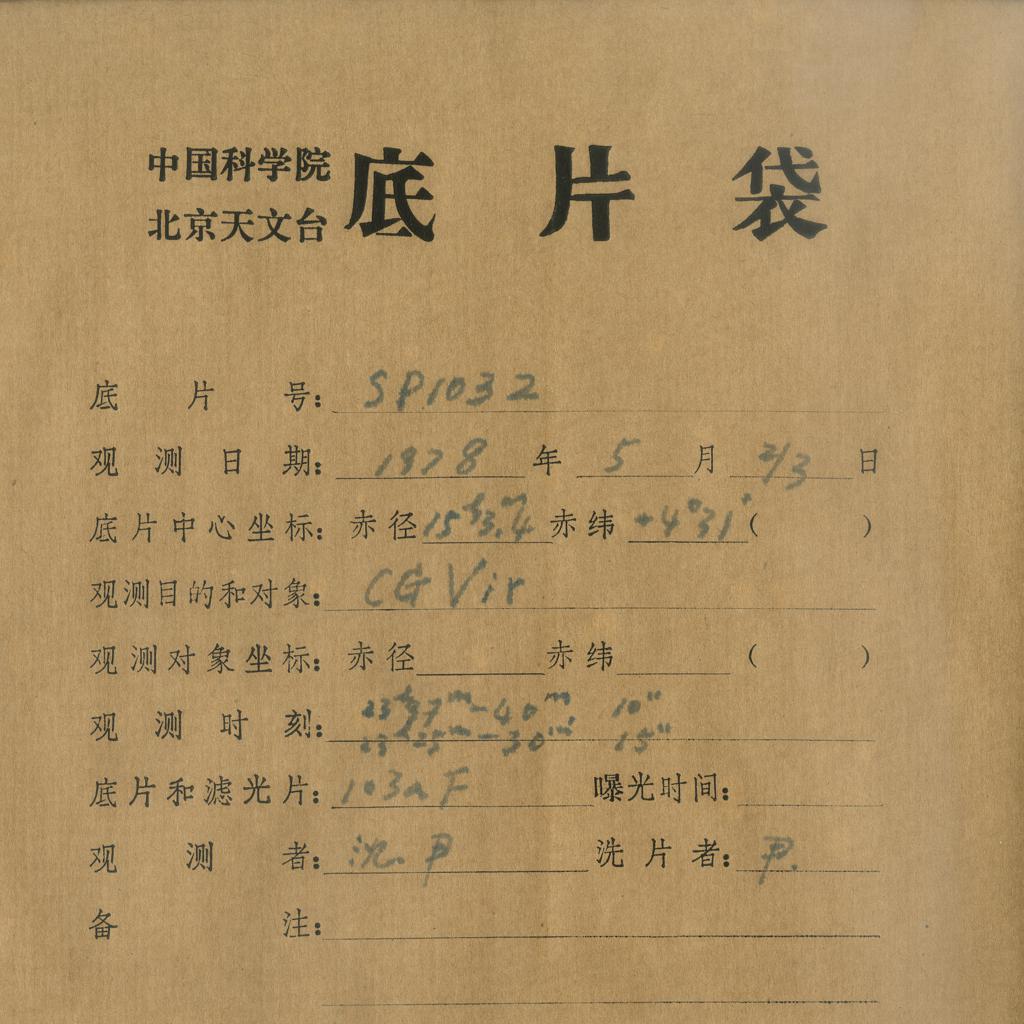 中国科学院
北京天文台
底片袋
底片号: SP1032
观测日期: 1978年5月2/3日
底片中心坐标: 赤径15ʰ3ᵐ.4 赤纬+4°31′( )
观测目的和对象: CG Vir
观测对象坐标: 赤径 赤纬 ( )
观测时刻: 23ʰ37ᵐ-40ᵐ 10"
23ʰ25ᵐ-30ᵐ 15"
底片和滤光片: 103aF 曝光时间:
观测者: 沈. 尹 洗片者: 尹.
备注: